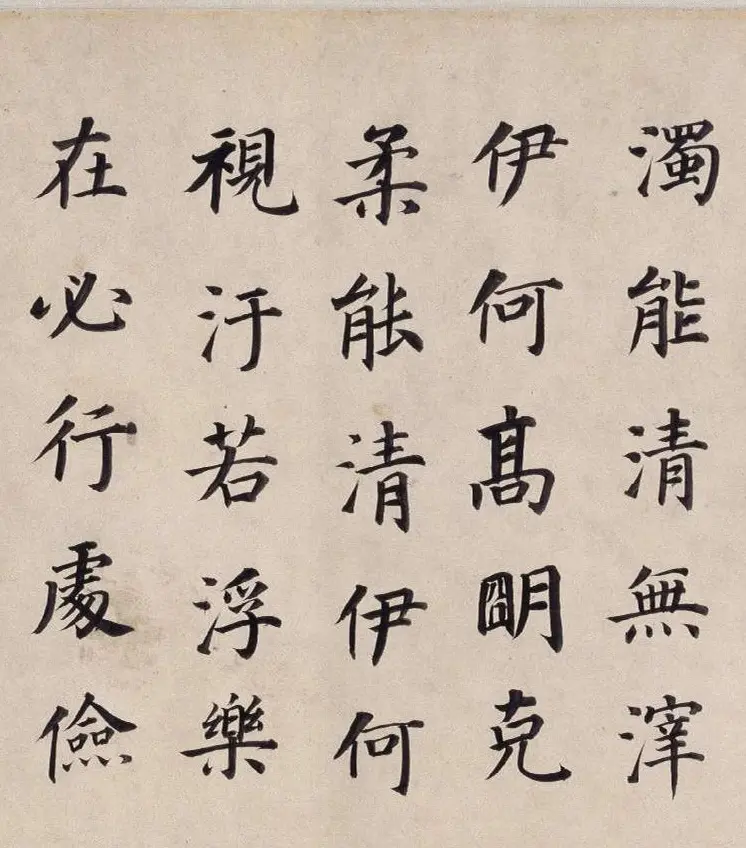 濁能清無滓
伊何高明克
柔能清伊何
視汙若浮樂
在必行處儉